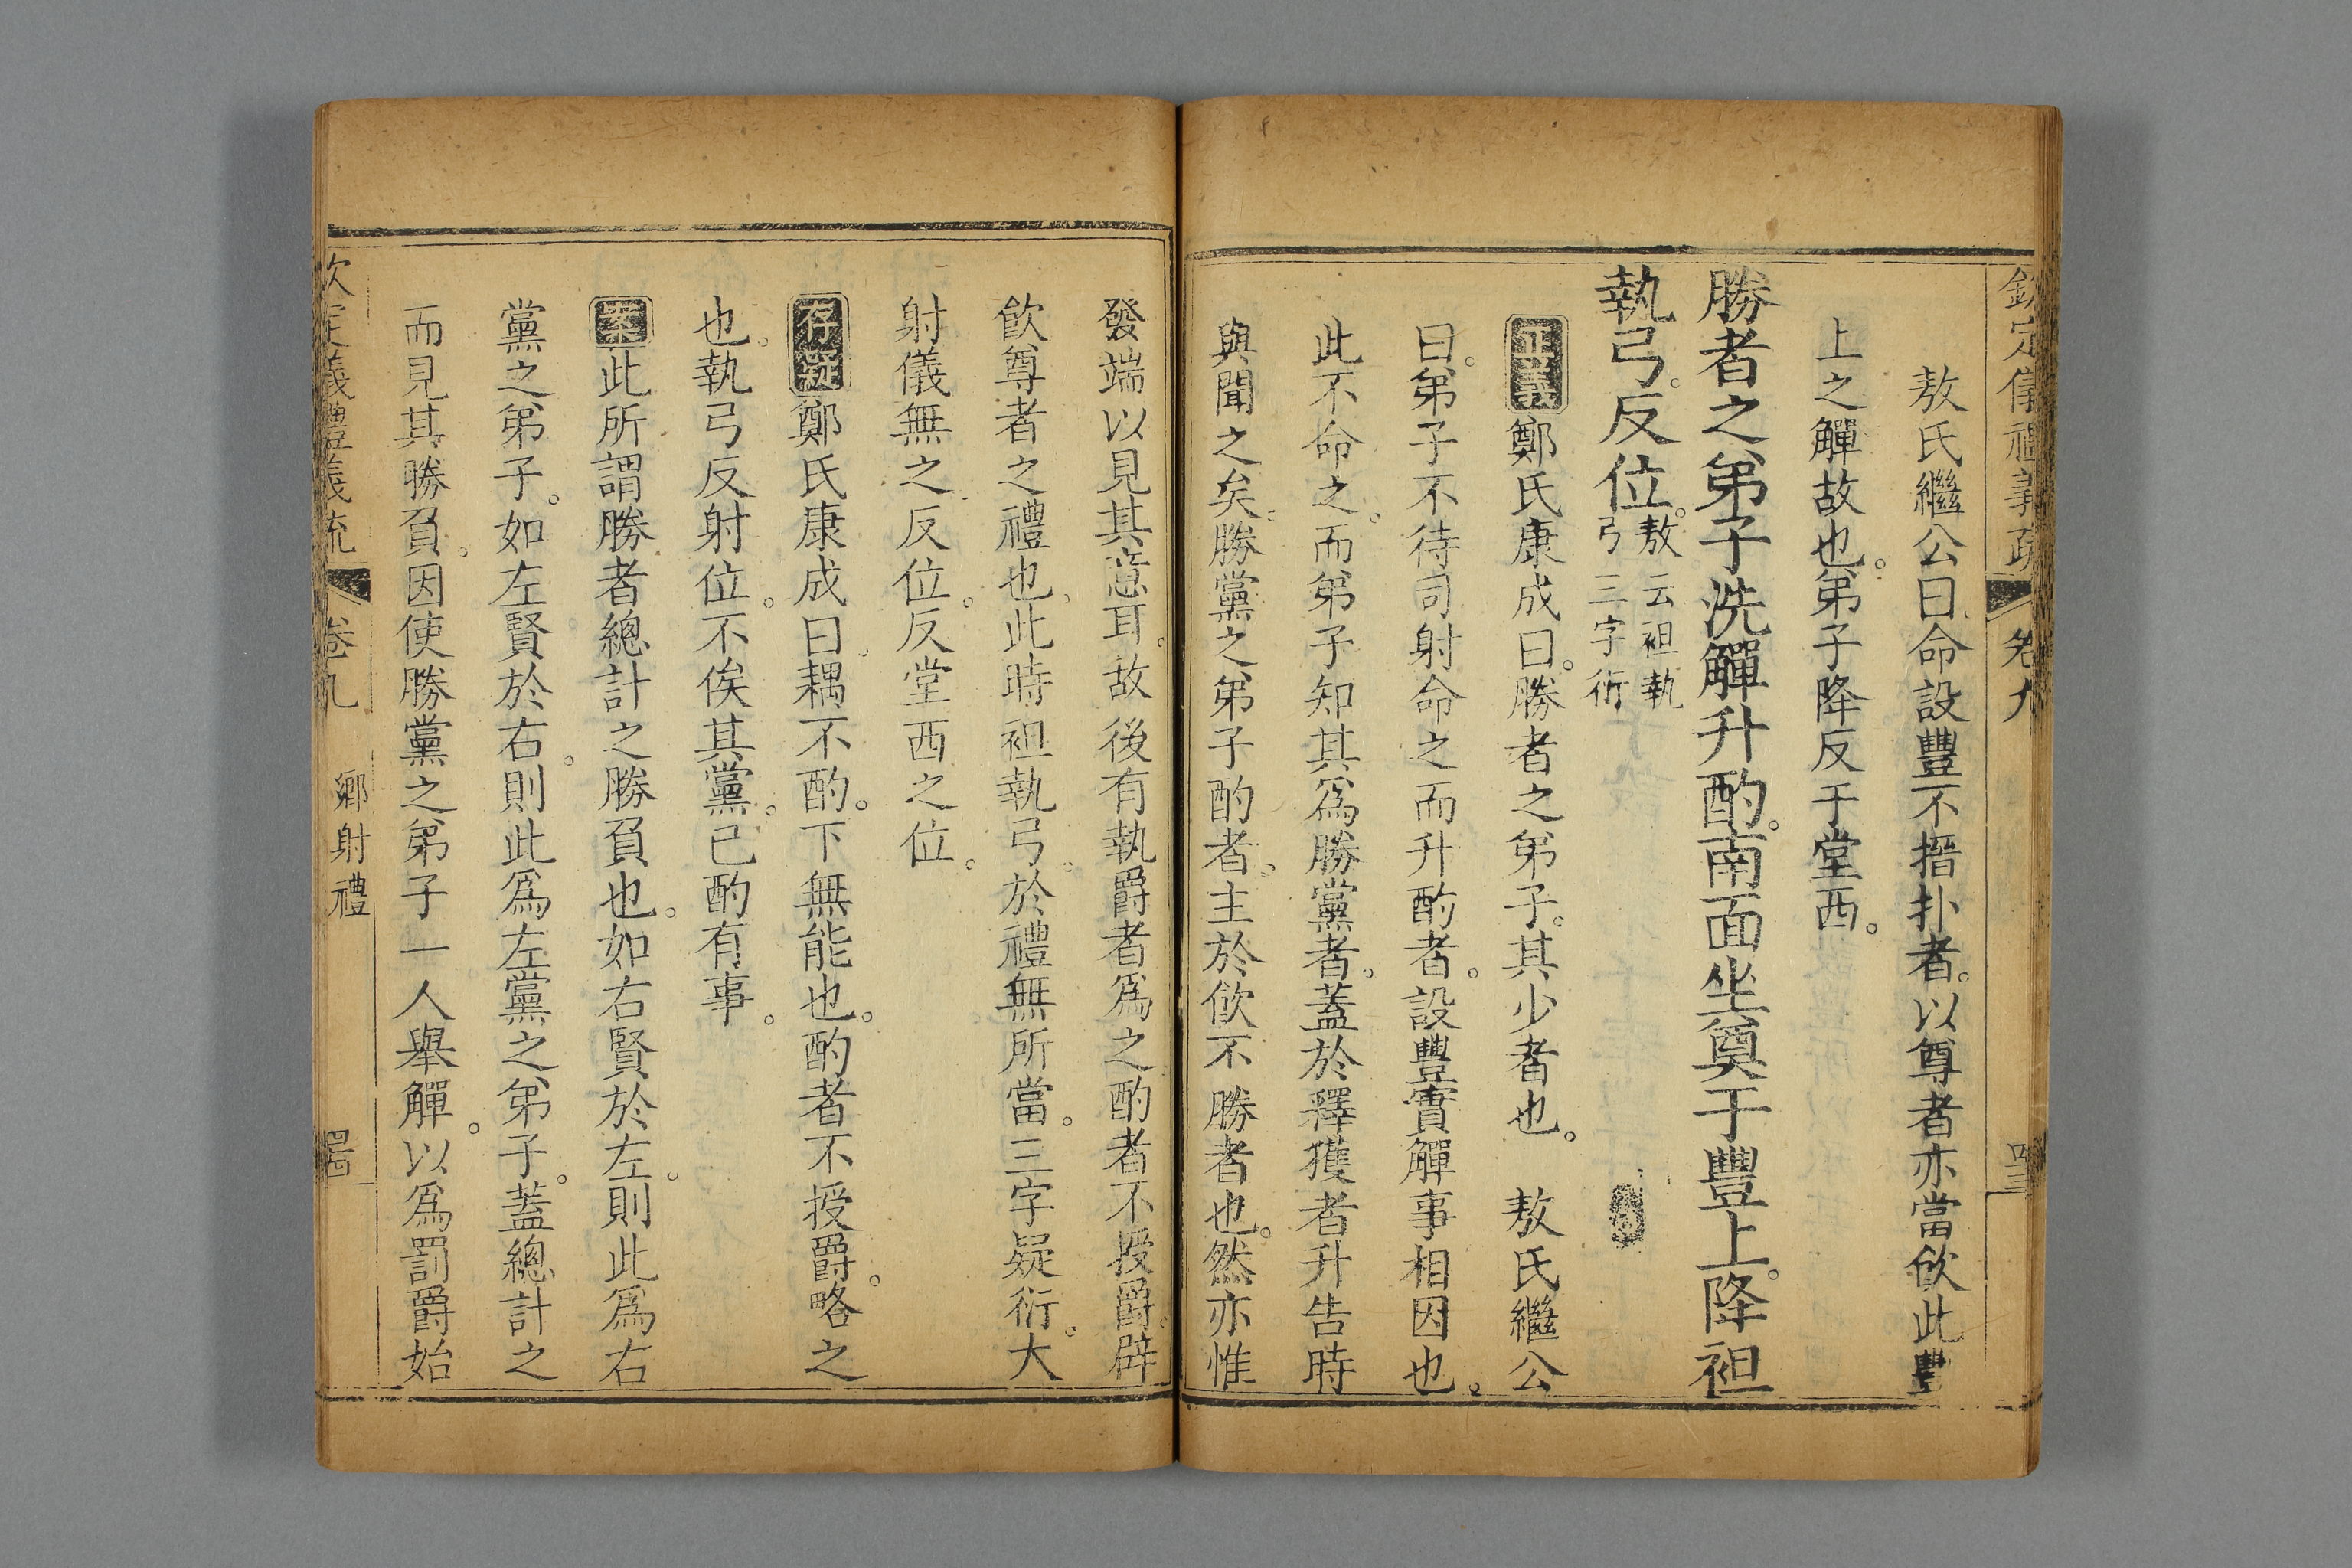 欽定儀禮義疏 卷九
敖氏繼公曰命設豐不搢扑者。以尊者亦當飲此豐
上之觶故也。弟子降反于堂西。
勝者之弟子洗觶升酌。南面坐奠于豐上。降袒
執弓。反位。敖云袒執弓三字衍
正義鄭氏康成曰。勝者之弟子。其少者也。 敖氏繼公
曰。弟子不待司射命之而升酌者。設豐實觶事相因也。
此不命之。而弟子知其為勝黨者。蓋於釋獲者升告時
與聞之矣。勝黨之弟子酌者。主於飲不勝者也。然亦惟
發端以見其意耳。故後有執爵者為之酌者不授爵。辟
飲尊者之禮也。此時袒執弓。於禮無所當。三字疑衍。大
射儀無之反位。反堂西之位。
存疑鄭氏康成曰。耦不酌。下無能也。酌者不授爵。略之
也。執弓反射位。不俟其黨。已酌有事。
案此所謂勝者總計之勝負也。如右賢於左。則此為右
黨之弟子。如左賢於右。則此為左黨之弟子。蓋總計之
而見其勝負。因使勝黨之弟子一人舉觶。以為罰爵始
欽定儀禮義疏 卷九 鄉射禮